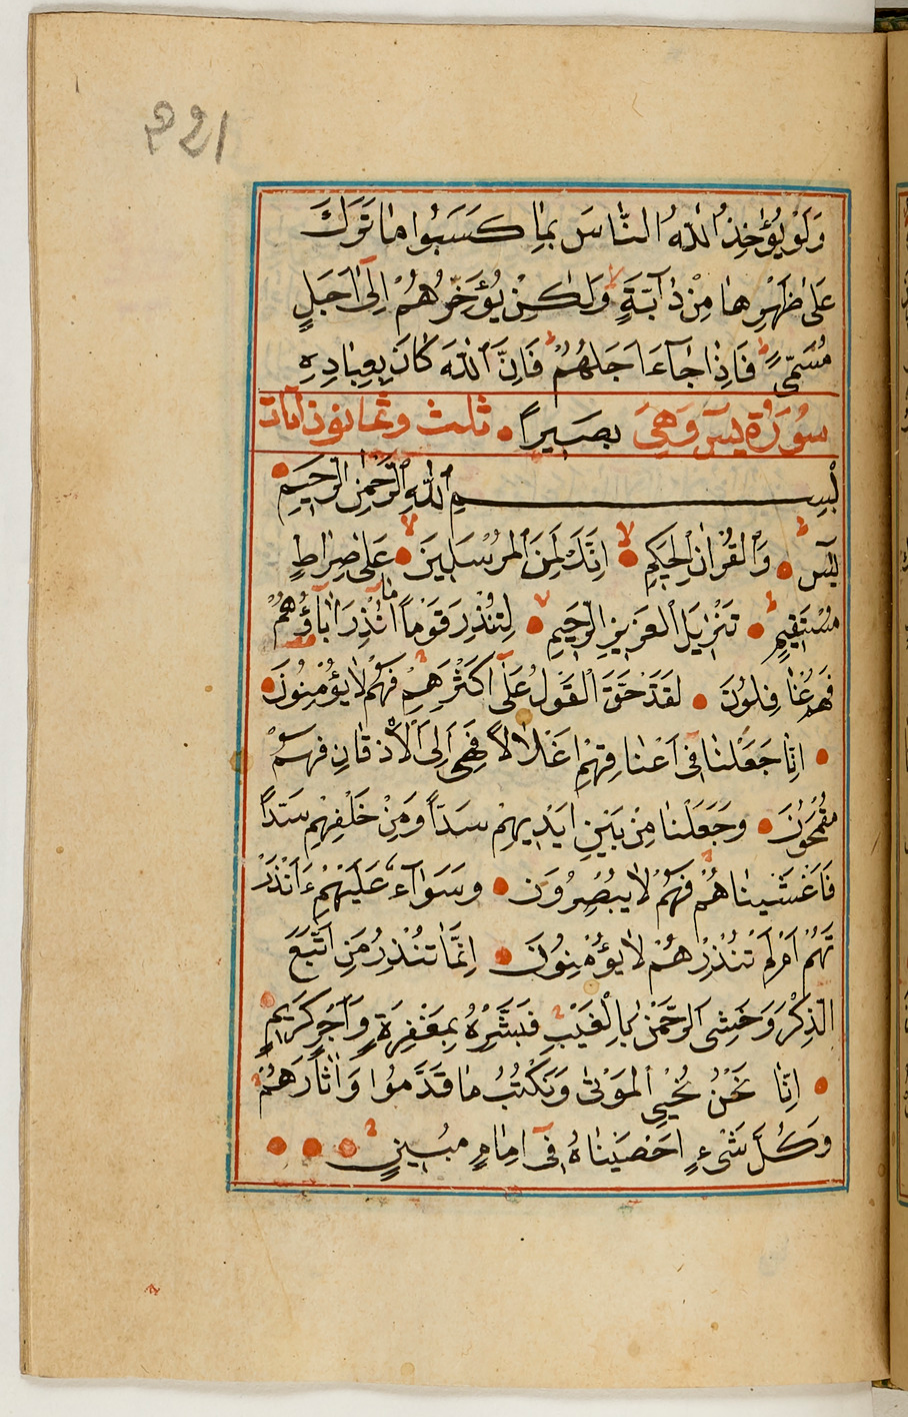 221
وَلَوْ يُؤٰاخِذُ اللّٰهُ النّٰاسَ بِمٰا كَسَبُوا مٰا تَرَكَ
عَلىٰ ظَهْرِهٰا مِنْ دٰآبَّةٍ وَلٰكِنْ يُؤَخِّرُهُمْ اِلىٰٓ اَجَلٍ
مُسَمًّى فَاِذٰا جٰآءَ اَجَلُهُمْ فَاِنَّ اللّٰهَ كٰانَ بِعِبٰادِهِ
سُورَةُ يٰسٓ وَهِيَ بَصِيراً ثلث وثمانون آيات
بِسْمِ اللّٰهِ الرَّحْمٰنِ الرَّحِيمِ
يٰسٓ وَالْقُرْاٰنِ الْحَكِيمِ اِنَّكَ لَمِنَ الْمُرْسَلِينَ عَلىٰ صِرٰاطٍ
مُسْتَقِيمٍ تَنْزِيلَ الْعَزِيزِ الرَّحِيمِ لِتُنْذِرَ قَوْماً مٰٓا اُنْذِرَ اٰبٰٓاؤُهُمْ
فَهُمْ غٰافِلُونَ لَقَدْ حَقَّ الْقَوْلُ عَلىٰٓ اَكْثَرِهِمْ فَهُمْ لٰا يُؤْمِنُونَ
اِنّٰا جَعَلْنٰا فىٓ اَعْنٰاقِهِمْ اَغْلٰالاً فَهِىَ اِلَى الْاَذْقٰانِ فَهُمْ
مُقْمَحُونَ وَجَعَلْنٰا مِنْ بَيْنِ اَيْدِيهِمْ سَدّاً وَمِنْ خَلْفِهِمْ سَدّاً
فَاَغْشَيْنٰاهُمْ فَهُمْ لٰا يُبْصِرُونَ وَسَوٰٓاءٌ عَلَيْهِمْ ءَاَنْذَرْ
تَهُمْ اَمْ لَمْ تُنْذِرْهُمْ لٰا يُؤْمِنُونَ اِنَّمٰا تُنْذِرُ مَنِ اتَّبَعَ
الذِّكْرَ وَخَشِىَ الرَّحْمٰنَ بِالْغَيْبِ فَبَشِّرْهُ بِمَغْفِرَةٍ وَاَجْرٍ كَرِيمٍ
اِنّٰا نَحْنُ نُحْيِى الْمَوْتىٰ وَنَكْتُبُ مٰا قَدَّمُوا وَاٰثٰارَهُمْ
وَكُلَّ شَىْءٍ اَحْصَيْنٰاهُ فىٓ اِمٰامٍ مُبِينٍ